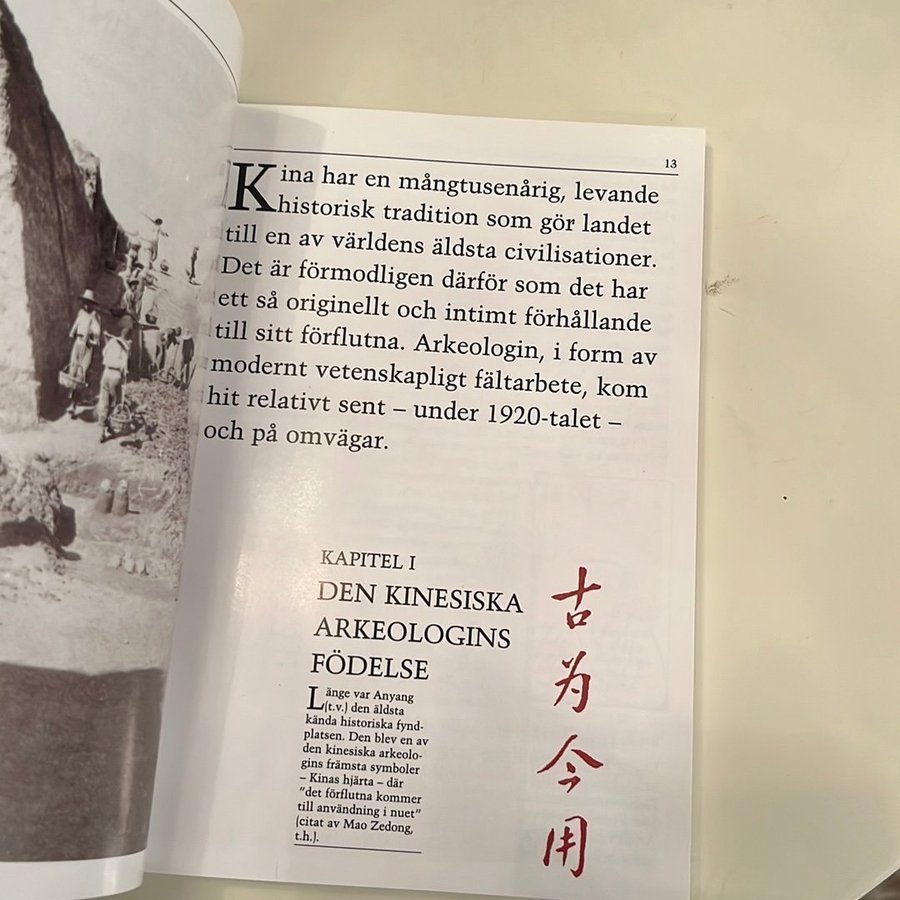 13
Kina har en mångtusenårig, levande
historisk tradition som gör landet
till en av världens äldsta civilisationer.
Det är förmodligen därför som det har
ett så originellt och intimt förhållande
till sitt förflutna. Arkeologin, i form av
modernt vetenskapligt fältarbete, kom
hit relativt sent – under 1920-talet –
och på omvägar.
KAPITEL I
DEN KINESISKA
ARKEOLOGINS
FÖDELSE
Länge var Anyang
(t.v.) den äldsta
kända historiska fynd-
platsen. Den blev en av
den kinesiska arkeolo-
gins främsta symboler
– Kinas hjärta – där
"det förflutna kommer
till användning i nuet"
(citat av Mao Zedong,
t.h.).
古
为
今
用